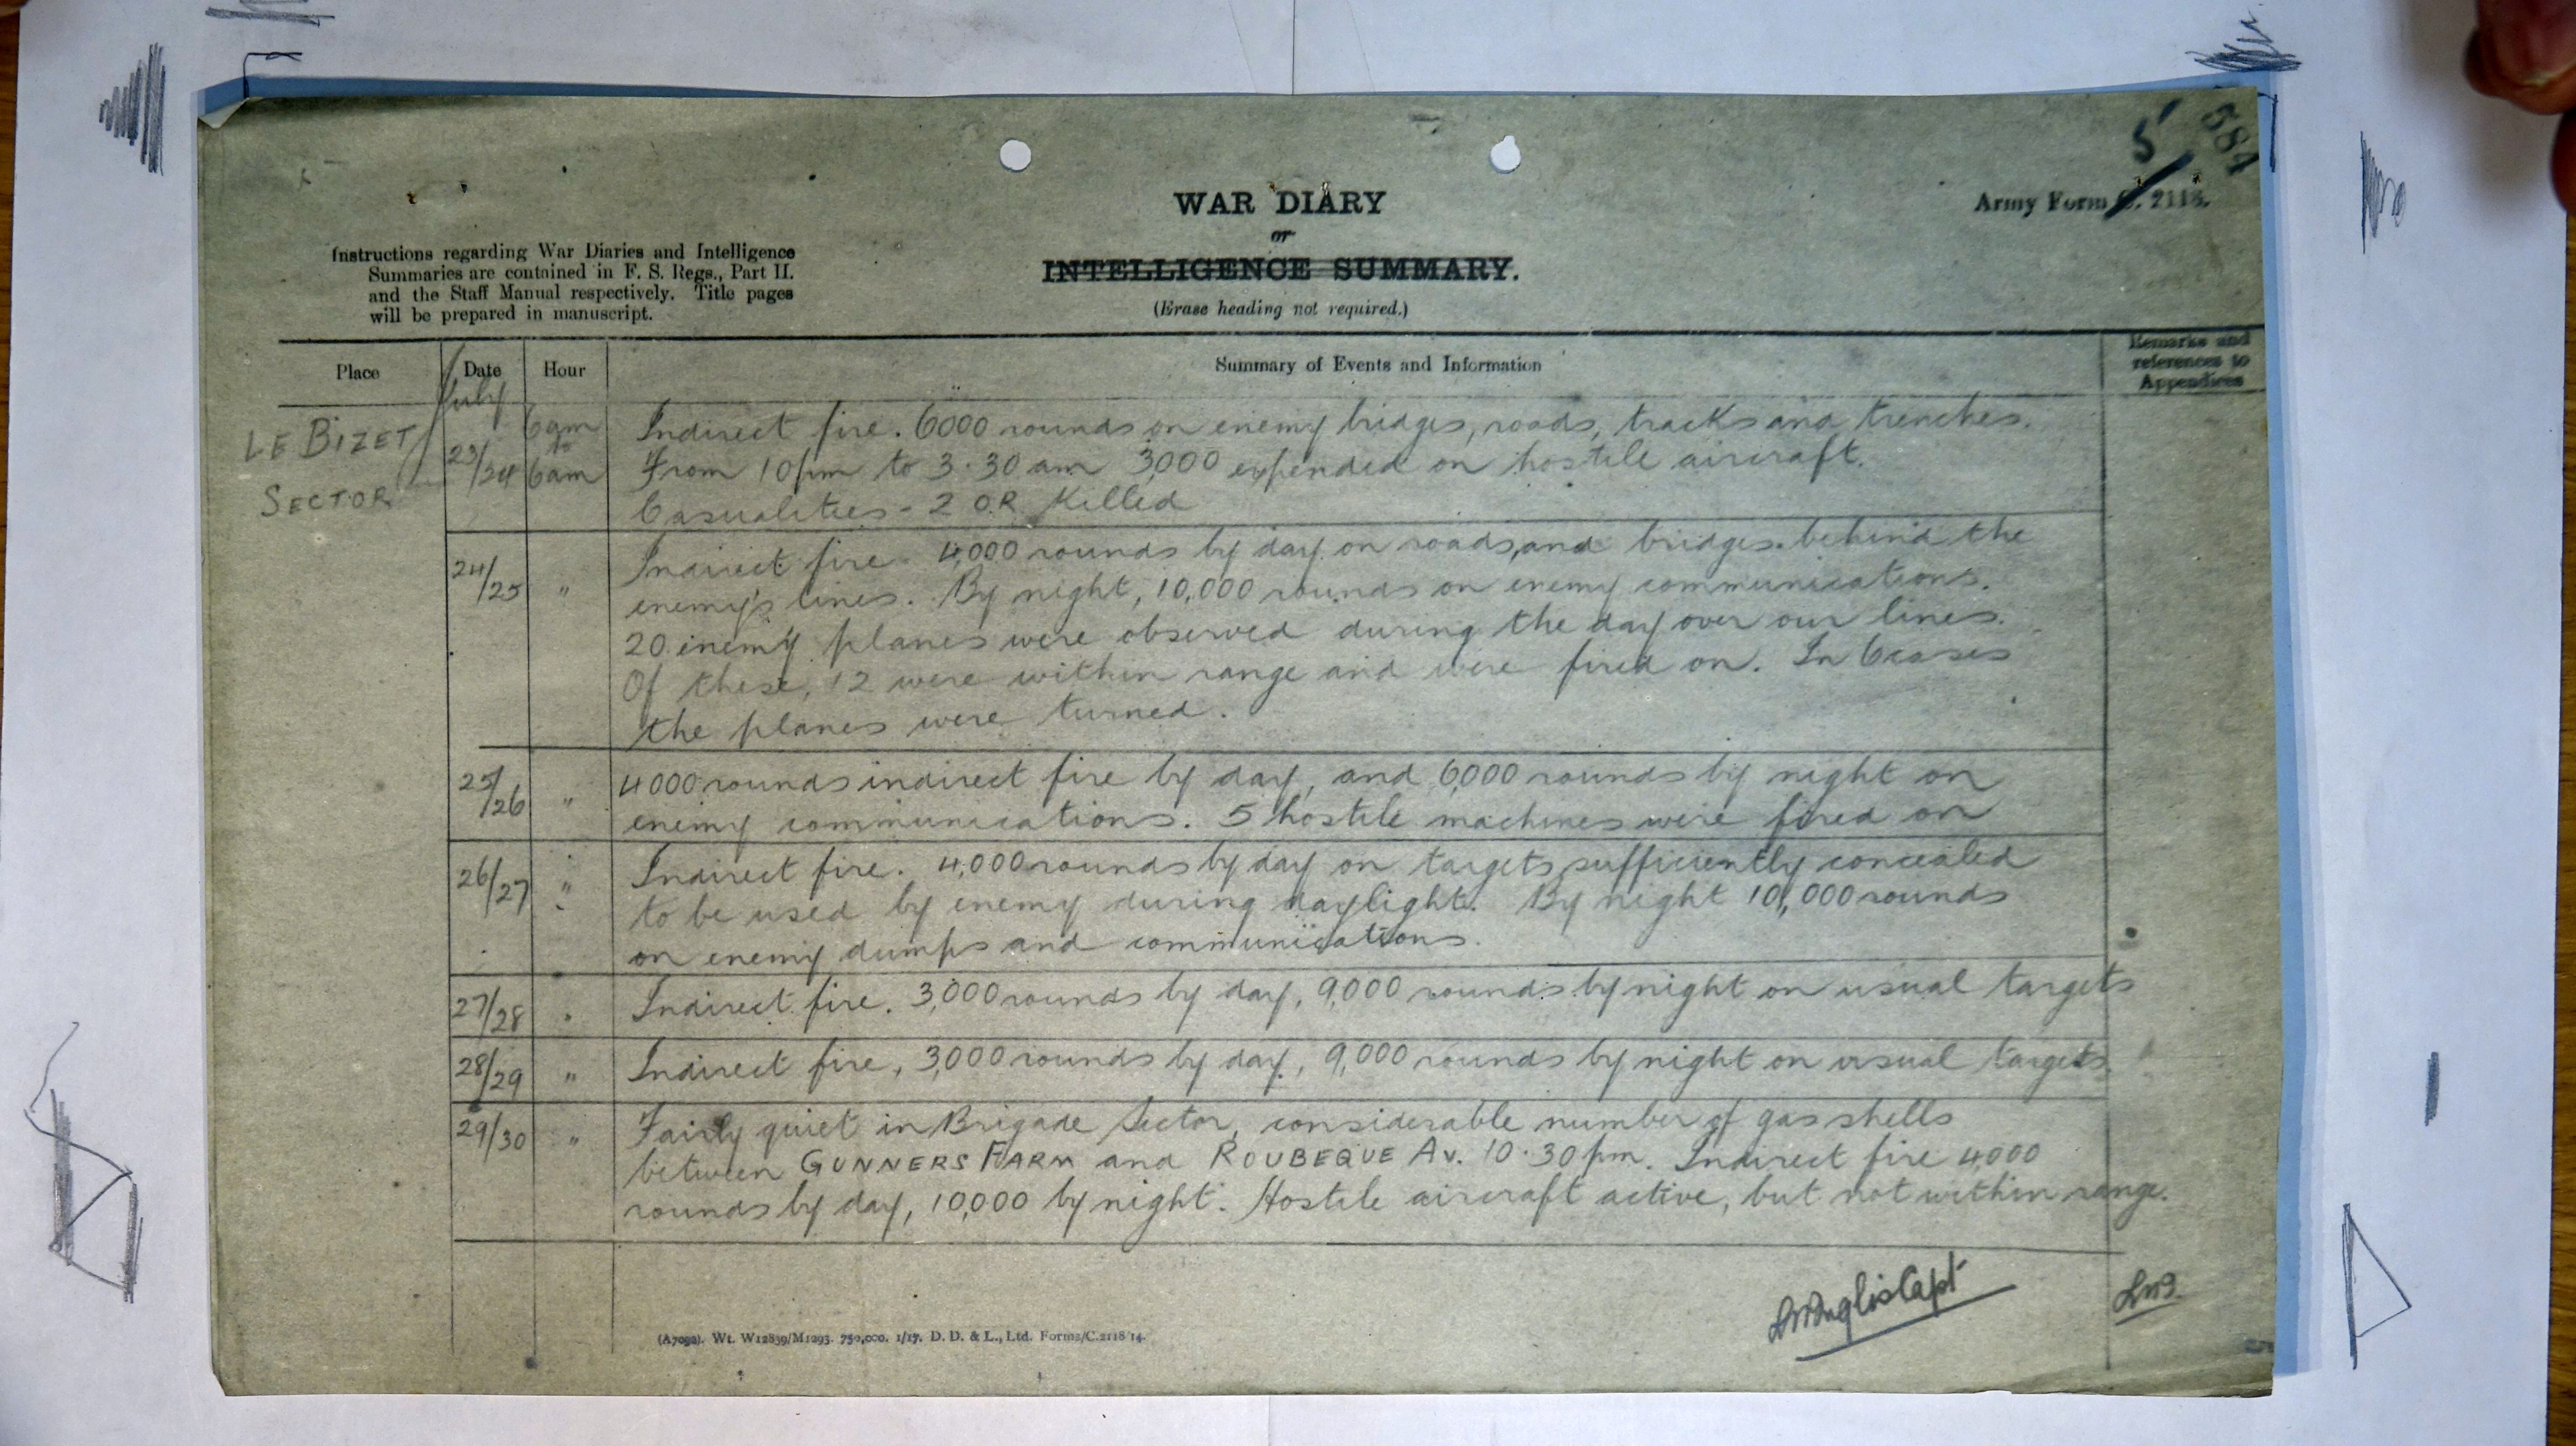 5
584
WAR DIARY
Army Form C. 2118.
or
INTELLIGENCE SUMMARY.
(Erase heading not required.)
Instructions regarding War Diaries and Intelligence
Summaries are contained in F. S. Regs., Part II.
and the Staff Manual respectively. Title pages
will be prepared in manuscript.
Place Date Hour Summary of Events and Information Remarks and references to Appendices
July
LE BIZET SECTOR
23/24 6am to 6am Indirect fire. 6000 rounds on enemy bridges, roads, tracks and trenches.
From 10pm to 3.30 am 3,000 expended on hostile aircraft.
Casualities - 2 O.R. Killed
24/25 " Indirect fire. 4,000 rounds by day on roads, and bridges behind the
enemy's lines. By night, 10,000 rounds on enemy communications.
20 enemy planes were observed during the day over our lines.
Of these, 12 were within range and were fired on. In 6 cases
the planes were turned.
25/26 " 4000 rounds indirect fire by day, and 6,000 rounds by night on
enemy communications. 5 hostile machines were fired on
26/27 " Indirect fire. 4,000 rounds by day on targets sufficiently concealed
to be used by enemy during daylight. By night 10,000 rounds
on enemy dumps and communications.
27/28 " Indirect fire. 3,000 rounds by day, 9,000 rounds by night on usual targets
28/29 " Indirect fire, 3,000 rounds by day, 9,000 rounds by night on usual targets.
29/30 " Fairly quiet in Brigade Sector, considerable number of gas shells
between GUNNERS FARM and ROUBEQUE AV. 10.30pm. Indirect fire 4,000
rounds by day, 10,000 by night. Hostile aircraft active, but not within range.
Inglis Capt
(A7092). Wt. W12839/M1293. 750,000. 1/17. D. D. & L., Ltd. Forms/C.2118/14.